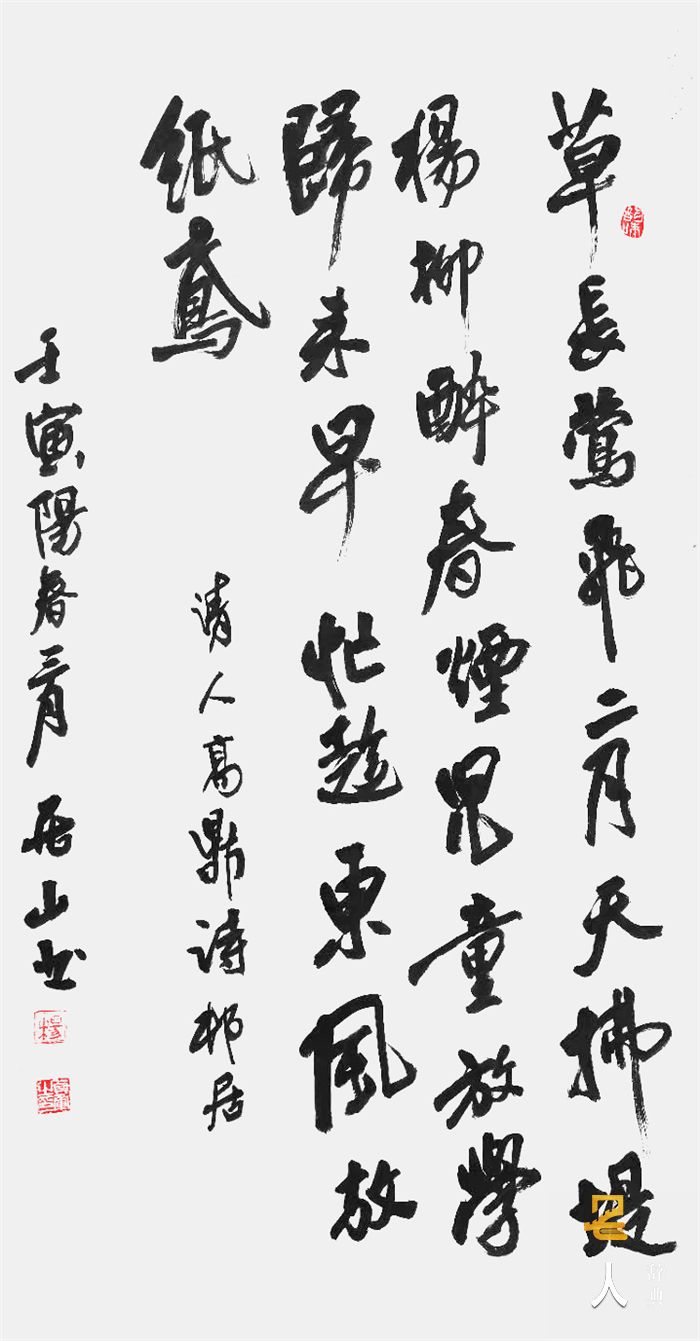 草長鶯飛二月天拂堤
楊柳醉春煙兒童放學
歸来早忙趁東風放
纸鳶
清人高鼎诗邨居
壬寅陽春三月 山书
楊
名人
辞典